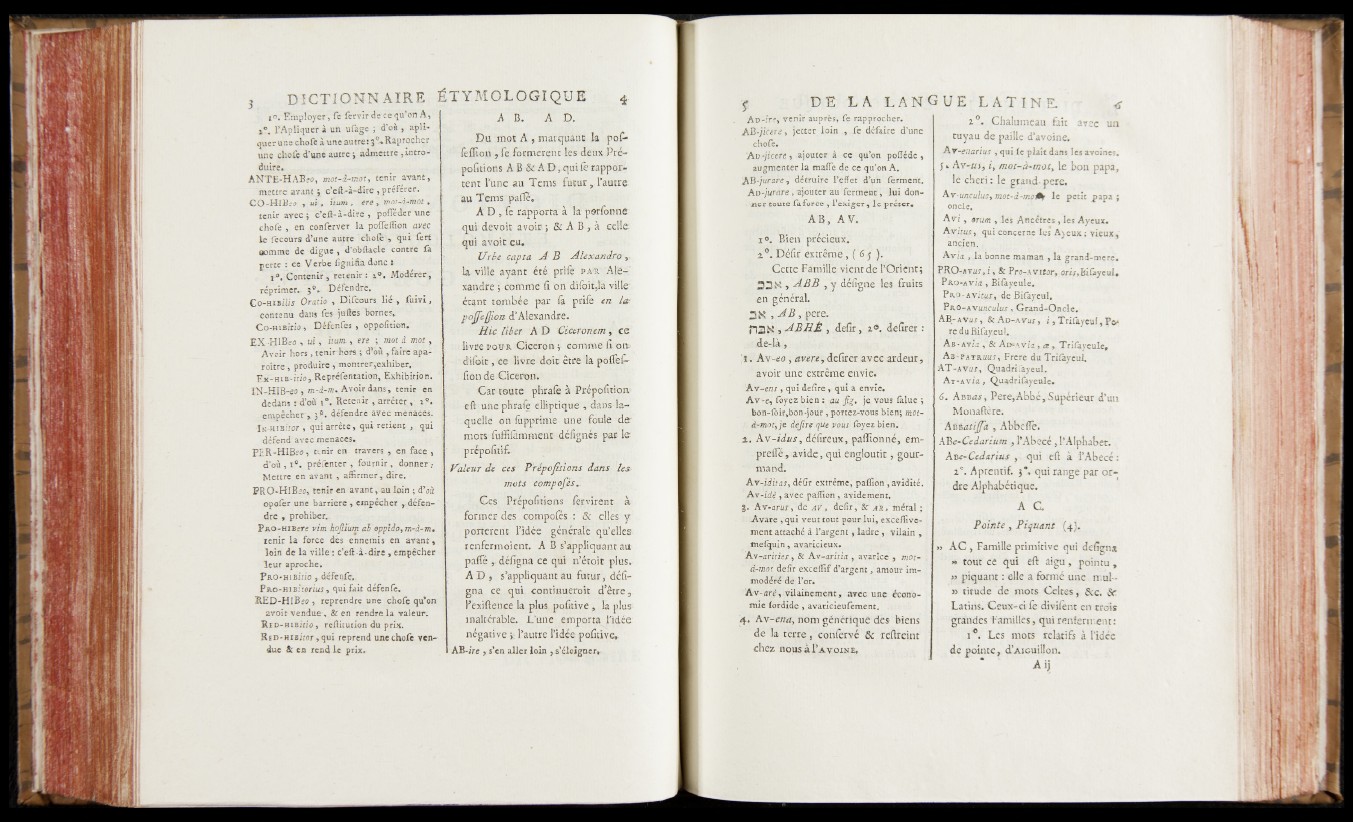 3 DICTIONNAIRE ÉTYMOLOGIQUE 4
1º. Employer, ſe ſervir de ce qu'on A,
2º. l'Apliquer à un uſage ; d'où, apli-
quer une choſe à une autre: 3º. Raprocher
une choſe d'une autre ; admettre, intro-
duire.
ANTE-HABeo, mot-à-mot, tenir avant,
mettre avant ; c'eſt-à-dire, préférer.
CO-HIBeo, ui, itum, ere, mot-à-mot,
tenir avec ; c'eſt-à-dire, poſſéder une
choſe, en conſerver la poſſeſſion avec
le ſecours d'une autre choſe, qui ſert
comme de digue, d'obſtacle contre ſa
perte : ce Verbe ſignifia donc :
1º. Contenir, retenir : 2º. Modérer,
réprimer. 3º. Défendre.
Co-HIBilis Oratio, Diſcours lié, ſuivi,
contenu dans ſes juſtes bornes.
Co-HIBitio, Défenſes, oppoſition.
EX-HIBeo, ui, itum, ere ; mot à mot,
Avoir hors, tenir hors ; d'où, faire apa-
roître, produire, montrer, exhiber.
Ex-HIBitio, Repréſentation, Exhibition.
IN-HIB-eo, m-à-m. Avoir dans, tenir en
dedans : d'où 1º. Retenir, arrêter, 2º.
empêcher, 3º. défendre avec menaces.
In-HIBitor, qui arrête, qui retient, qui
défend avec menaces.
PER-HIBeo, tenir en travers, en face,
d'où, 1º. préſenter, fournir, donner ;
Mettre en avant, affirmer, dire.
PRO-HIBeo, tenir en avant, au loin ; d'où
opoſer une barriere, empêcher, défen-
dre, prohiber.
Pro-HIBere vim hoſtium ab oppido, m-à-m.
tenir la force des ennemis en avant,
loin de la ville : c'eſt-à-dire, empêcher
leur aproche.
Pro-HIBitio, défenſe.
Pro-HIBitorius, qui fait défenſe.
RED-HIBeo, reprendre une choſe qu'on
avoit vendue, & en rendre la valeur.
Red-HIBitio, reſtitution du prix.
Red-HIBitor, qui reprend une choſe ven-
due & en rend le prix.
A B. A D.
Du mot A, marquant la poſ-
ſeſſion, ſe formerent les deux Pré-
poſitions A B & A D, qui ſe rappor-
tent l'une au Tems futur, l'autre
au Tems paſſé.
A D, ſe rapporta à la perſonne
qui devoit avoir ; & A B, à celle
qui avoit eu.
Urbe capta A B Alexandro,
la ville ayant été priſe PAR Ale-
xandre ; comme ſi on diſoit, la ville
étant tombée par ſa priſe en la
poſſeſſion d'Alexandre.
Hic liber A D Ciceronem, ce
livre POUR Ciceron ; comme ſi on
diſoit, ce livre doit être la poſſeſ-
ſion de Ciceron.
Car toute phraſe à Prépoſition
eſt une phraſe elliptique, dans la-
quelle on ſupprime une foule de
mots ſuffiſamment déſignés par le
prépoſitif.
Valeur de ces Prépoſitions dans les
mots compoſés.
Ces Prépoſitions ſervirent à
former des compoſés : & elles y
porterent l'idée générale qu'elles
renfermoient. A B s'appliquant au
paſſé, déſigna ce qui n'étoit plus.
A D, s'appliquant au futur, déſi-
gna ce qui continueroit d'être,
l'exiſtence la plus poſitive, la plus
inaltérable. L'une emporta l'idée
négative ; l'autre l'idée poſitive.
AB-ire, s'en aller loin, s'éloigner.
5 DE LA LANGUE LATINE. 6
AD-ire, venir auprès, ſe rapprocher.
AB-jicere, jetter loin, ſe défaire d'une
choſe.
AD-jicere, ajouter à ce qu'on poſſéde,
augmenter la maſſe de ce qu'on A.
AB-jurare, détruire l'effet d'un ferment.
AD-jurare, ajouter au ferment, lui don-
ner toute ſa force, l'exiger, le prêter.
AB, AV.
1º. Bien précieux.
2º. Déſir extrême, ( 65 ).
Cette Famille vient de l'Orient;
אבב, ABB, y déſigne les fruits
en général.
אב, AB, pere.
אבה, ABHÉ, deſir, 2º. deſirer :
de-là,
1. Av-eo, avere, deſirer avec ardeur,
avoir une extrême envie.
Av-ens, qui deſire, qui a envie.
Av-e, ſoyez bien : au fig. je vous ſalue ;
bon-ſoir, bon-jour, portez-vous bien; mot-
à-mot, je deſire que vous ſoyez bien.
2. Av-idus, déſireux, paſſionné, em-
preſſé, avide, qui engloutit, gour-
mand.
Av-iditas, déſir extrême, paſſion, avidité.
Av-idè, avec paſſion, avidement.
3. Av-arus, de AV, deſir, & AR. métal ;
Avare, qui veut tout pour lui, exceſſive-
ment attaché à l'argent, ladre, vilain,
meſquin, avaricieux.
Av-arities, & Av-aritia, avarice, mot-
à-mot deſir exceſſif d'argent, amour im-
modéré de l'or.
Av-arè, vilainement, avec une écono-
mie ſordide, avaricieuſement.
4. Av-ena, nom générique des biens
de la terre, conſervé & reſtreint
chez nous à l'AVOINE.
2º. Chalumeau fait avec un
tuyau de paille d'avoine.
Av-enarius, qui ſe plaît dans les avoines.
5. Av-us, i, mot-à-mot, le bon papa,
le cheri : le grand-pere.
Av-unculus, mot-à-mot, le petit papa ;
oncle.
Avi, orum, les Ancêtres, les Ayeux.
Avitus, qui concerne les Ayeux ; vieux,
ancien.
Avia, la bonne maman, la grand-mere.
PRO-avus, i, & Pro-avitor, oris, Biſayeul.
Pro-avia, Biſayeule.
Pro-avitus, de Biſayeul.
Pro-avunculus, Grand-Oncle.
AB-avus, & Ad-avus, i, Triſayeul, Pe-
re du Biſayeul.
Ab-avia, & Ad-avia, æ, Triſayeule.
Ab-patruus, Frere du Triſayeul.
AT-avus, Quadriſayeul.
At-avia, Quadriſayeule.
6. Abbas, Pere, Abbé, Supérieur d'un
Monaſtère.
Abbatiſſa, Abbeſſe.
ABe-Cedarium, l'Abecé, l'Alphabet.
Abe-Cedarius, qui eſt à l'Abecé :
2º. Aprentif. 3º. qui range par or-
dre Alphabétique.
A C.
Pointe, Piquant (4).
» AC, Famille primitive qui déſigna
» tout ce qui eſt aigu, pointu,
» piquant : elle a formé une mul-
» titude de mots Celtes, &c. &
Latins. Ceux-ci ſe diviſent en trois
grandes Familles, qui renferment :
1º. Les mots relatifs à l'idée
de pointe, d'AIGUILLON.
A ij